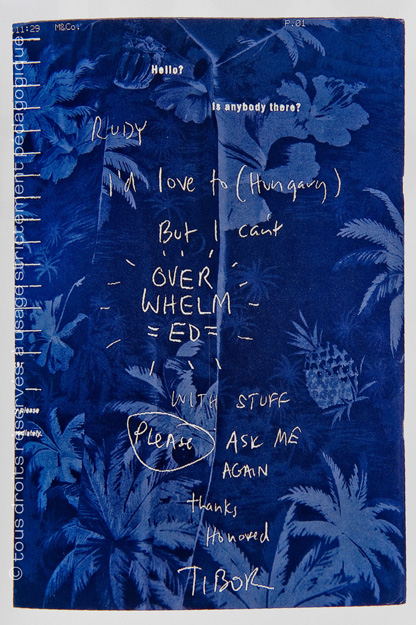 11:29 M&Co. P.01
Hello?
Is anybody there?
RUDY
I'd love to (Hungary)
But I can't
OVER
WHELM
=ED=
WITH STUFF
PLEASE ASK ME
AGAIN
thanks
Honored
TIBOR
please
mediately.
© tous droits reservés, à usage strictement pédagogique